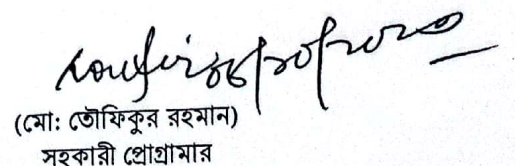 (মো: তৌফিকুর রহমান)
সহকারী প্রোগ্রামার